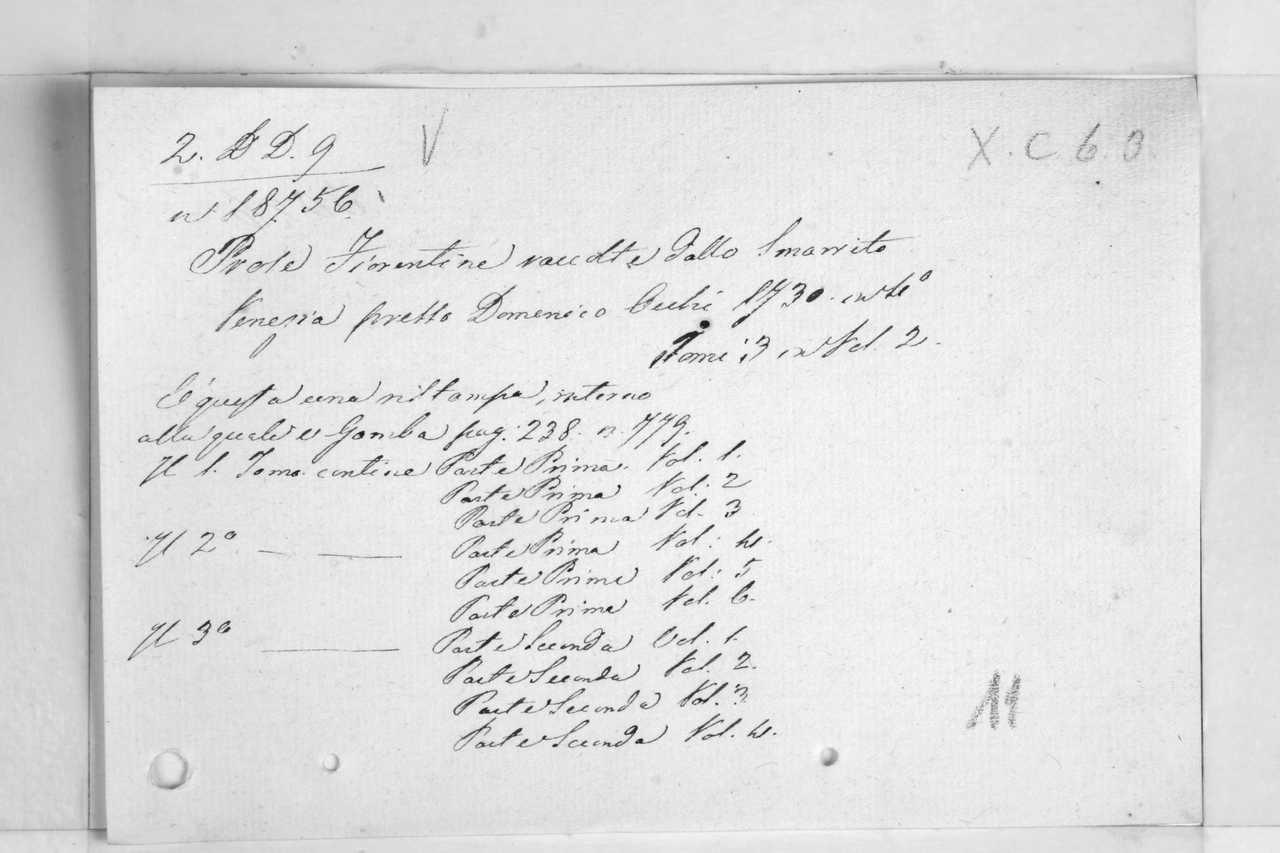 2. D D. 9 V X. C. 6. 0.
n 18756.
Prose Fiorentine raccolte dallo Smarrito
Venezia presso Domenico Occhi 1730. in 4º
Tomi 3 in Vol. 2.
E' questa una ristampa, intorno
alla quale v. Gamba pag. 238. n. 779.
Il 1. Tomo contiene Parte Prima. Vol. 1.
Parte Prima Vol. 2
Parte Prima Vol. 3
Il 2º — — Parte Prima Vol: 4.
Parte Prima Vol: 5
Parte Prima Vol. 6.
Il 3º — Parte Seconda Vol. 1.
Parte Seconda Vol. 2.
Parte Seconda Vol. 3
Parte Seconda Vol. 4.